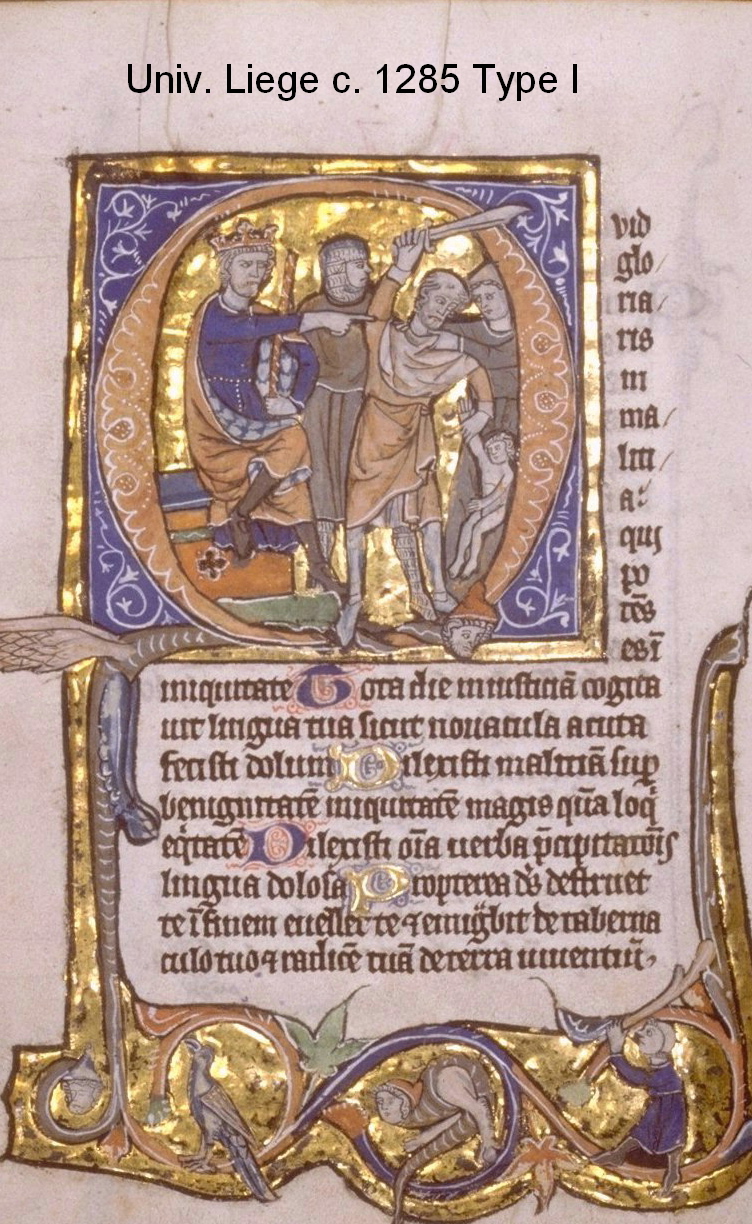 Univ. Liege c. 1285 Type I
Q
vid
glo/
ria/
ris
in
ma/
liti/
a:
qui
po
tēs
es ī
iniquitate Tota die iniusticiā cogita
uit lingua tua sicut nouacula acuta
fecisti dolum Dilexisti maliciā sup̄
benignitatē iniquitatē magis quā loq̄
eq̄tatē Dilexisti oīa uerba p̄cipitatōis
lingua dolosa Propterea ds̄ destruet
te ī finem euellet te ⁊ emigͣbit de taberna
culo tuo ⁊ radicē tuā de terra uiuentiū